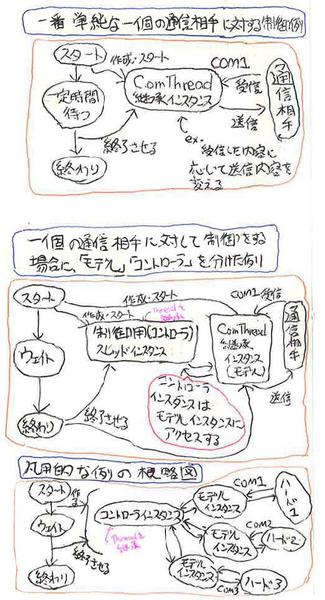 一番単純な一個の通信相手に対する制御例
スタート
作成・スタート
ComThread
継承インスタンス
COM1
受信
送信
通信相手
一定時間
待つ
終了させる
終わり
ex.
受信した内容に
応じて送信内容を
変える
一個の通信相手に対して制御をする
場合に、「モデル」「コントローラ」を分けた例
スタート
作成・スタート
作成・スタート
Threadを
継承
COM1
受信
通信相手
制御用(コントローラ)
スレッドインスタンス
ComThread
継承
インスタンス
(モデル)
ウェイト
送信
コントローラ
インスタンスは
モデルインスタンスに
アクセスする
終わり
終了させる
汎用的な例の概略図
スタート
作る
ウェイト
終了させる
終わり
コントローラインスタンス
Threadを
継承
モデル
インスタンス
COM1
ハード1
モデル
インスタンス
COM2
ハード2
モデル
インスタンス
COM3
ハード3